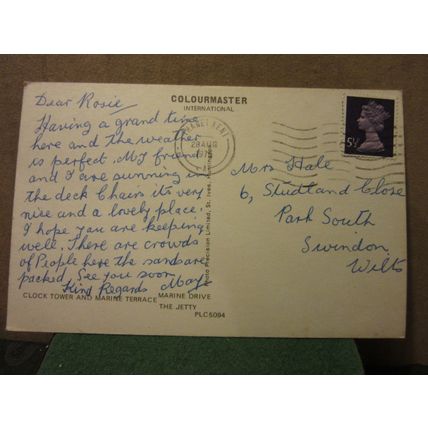 Dear Rosie
Having a grand time
here and the weather
is perfect. My friend
and I are sunning in
the deck Chairs its very
nise and a lovely place,
I hope you are keeping
well. There are crowds
of People here the sands are
packed. See you soon
Kind Regards May
COLOURMASTER
INTERNATIONAL
THANET KENT
28 AUG
1975
5½
Mrs Hale
6, Studland Close
Park South
Swindon
Wilts
Photo Precision Limited, St. Ives,
CLOCK TOWER AND MARINE TERRACE
MARINE DRIVE
THE JETTY
PLC5094